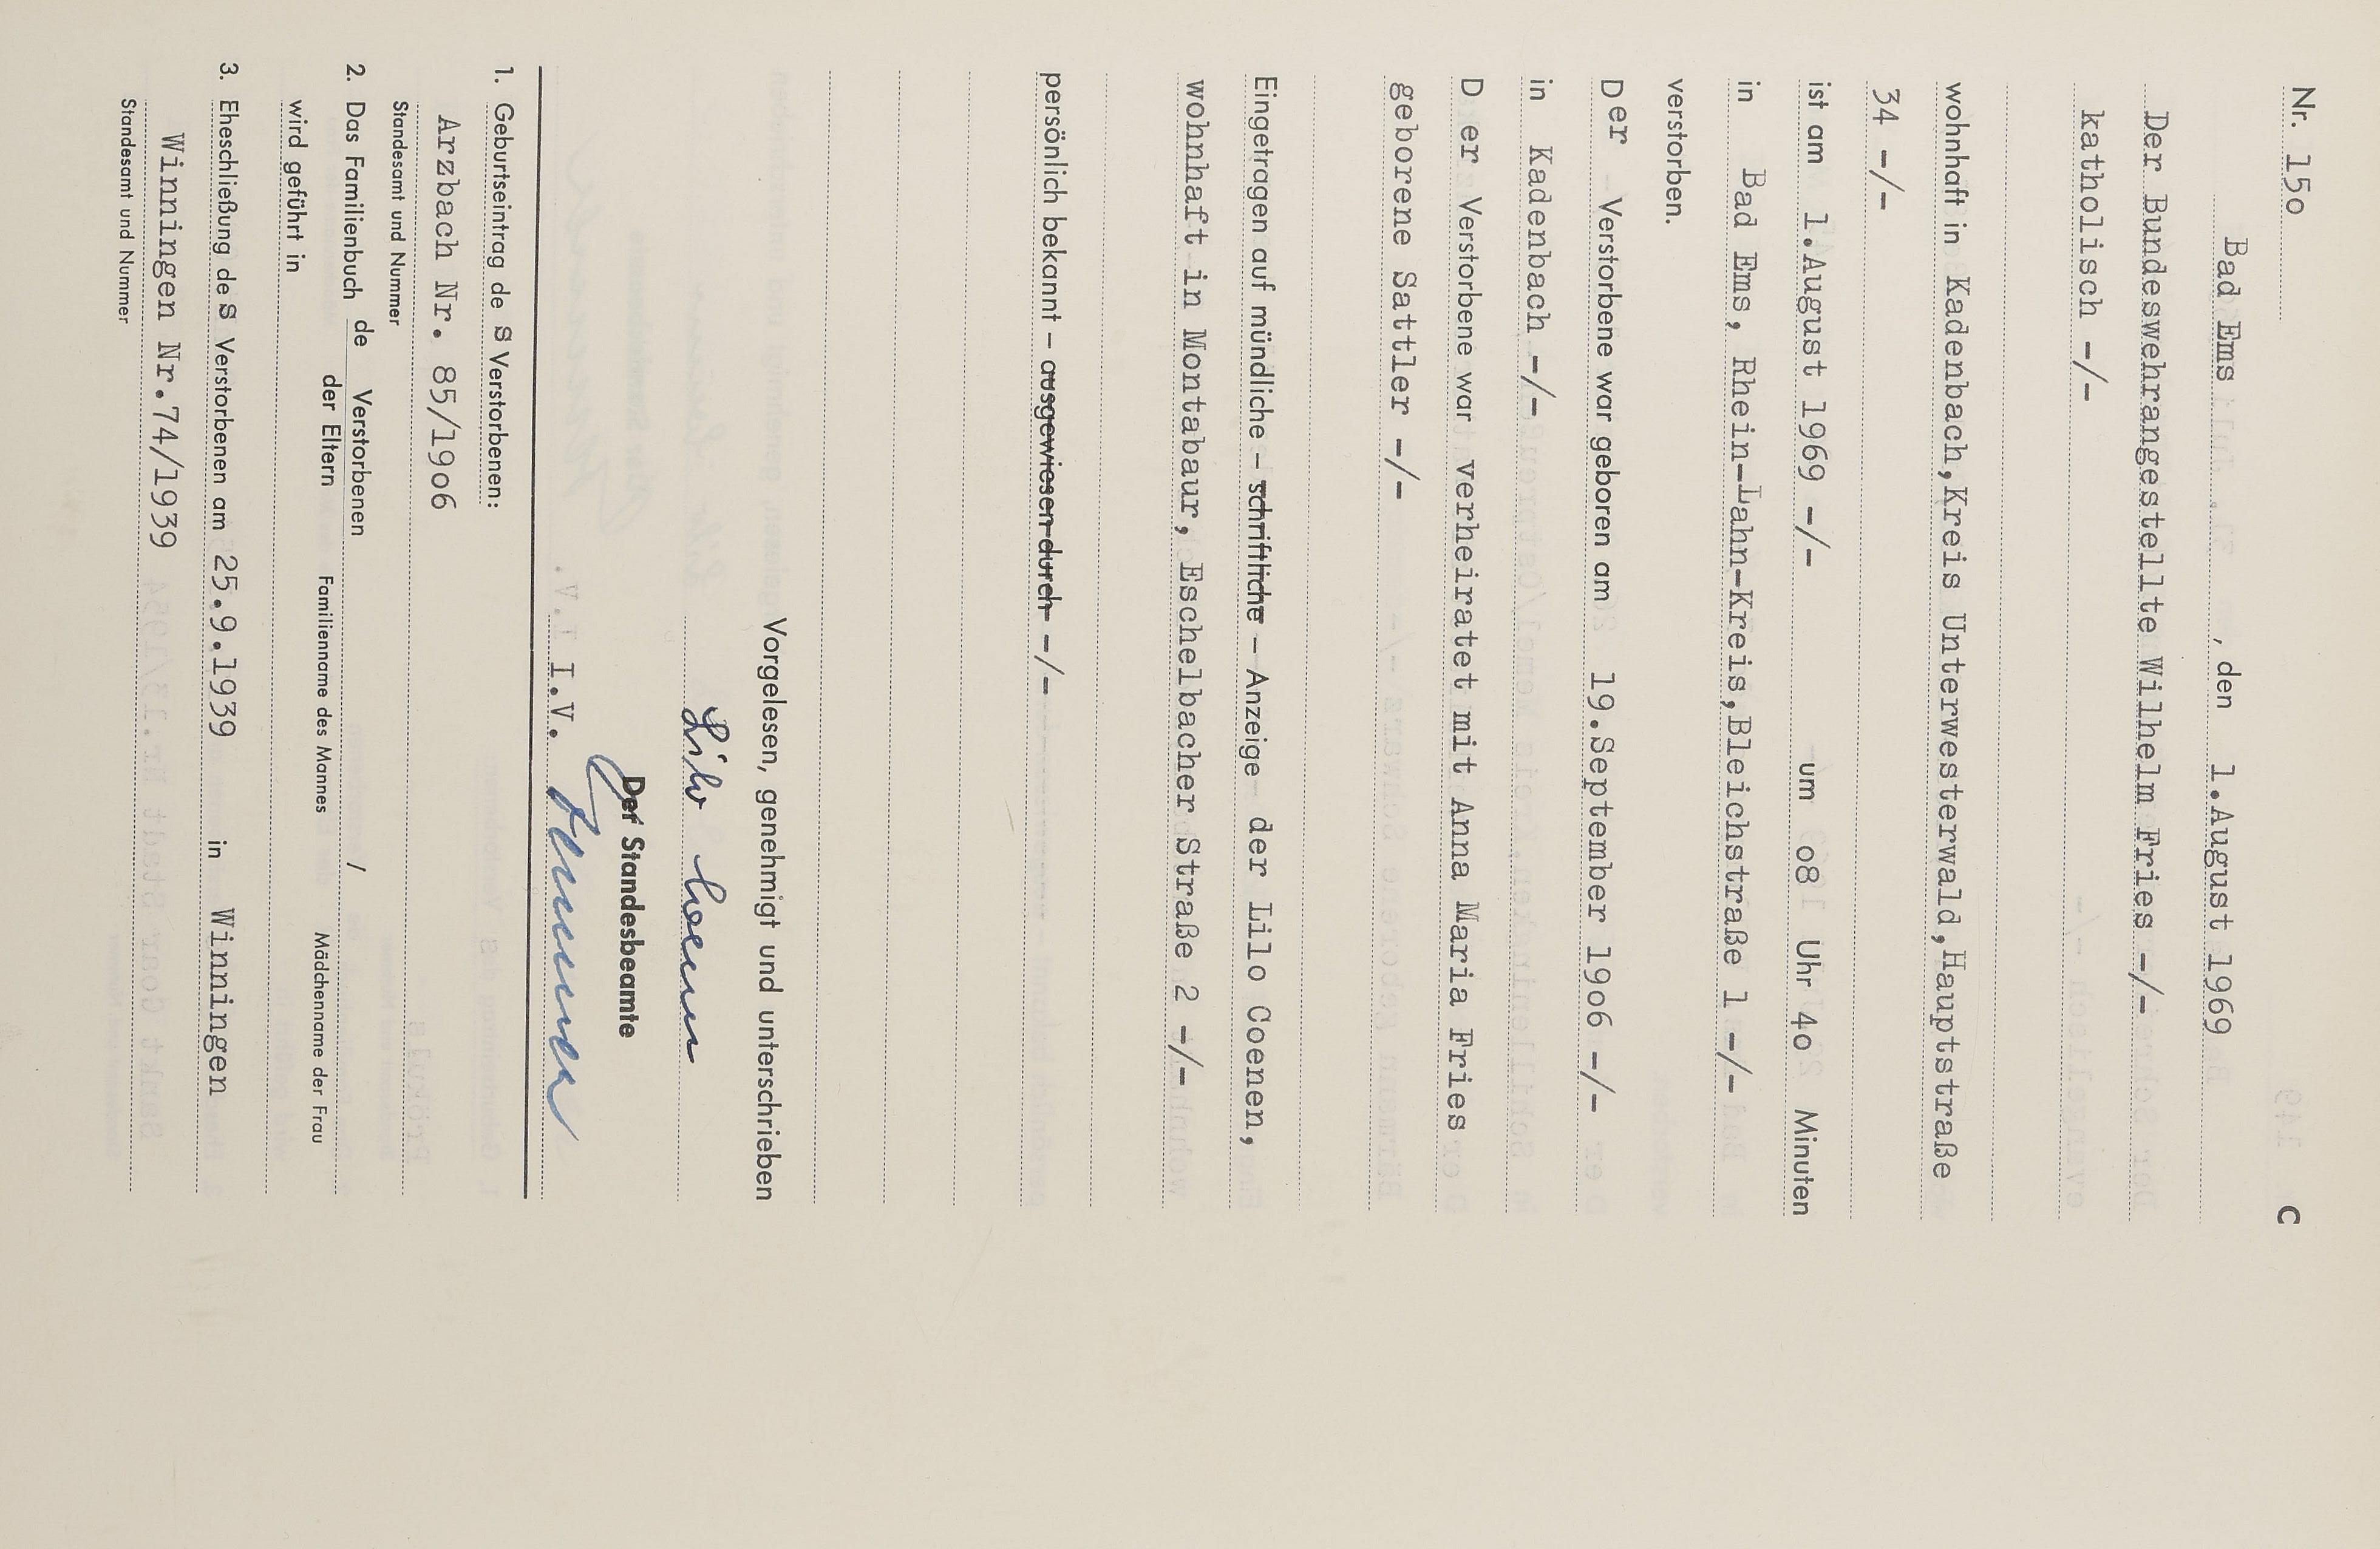 Nr. 15o C
Bad Ems , den 1.August 1969
Der Bundeswehrangestellte Wilhelm Fries -/-
katholisch -/-
wohnhaft in Kadenbach,Kreis Unterwesterwald,Hauptstraße
34 -/-
ist am 1.August 1969 -/- um o8 Uhr 4o Minuten
in Bad Ems, Rhein-Lahn-Kreis,Bleichstraße 1 -/-
verstorben.
Der Verstorbene war geboren am 19.September 19o6 -/-
in Kadenbach -/-
D er Verstorbene war verheiratet mit Anna Maria Fries
geborene Sattler -/-
Eingetragen auf mündliche – schriftliche – Anzeige der Lilo Coenen,
wohnhaft in Montabaur, Eschelbacher Straße 2 -/-
persönlich bekannt – ausgewiesen durch -/-
Vorgelesen, genehmigt und unterschrieben
Lilo Coenen
Der Standesbeamte
I.V.
1. Geburtseintrag de s Verstorbenen:
Arzbach Nr. 85/19o6
Standesamt und Nummer
2. Das Familienbuch de Verstorbenen /
der Eltern Familienname des Mannes Mädchenname der Frau
wird geführt in
3. Eheschließung de s Verstorbenen am 25.9.1939 in Winningen
Winningen Nr.74/1939
Standesamt und Nummer